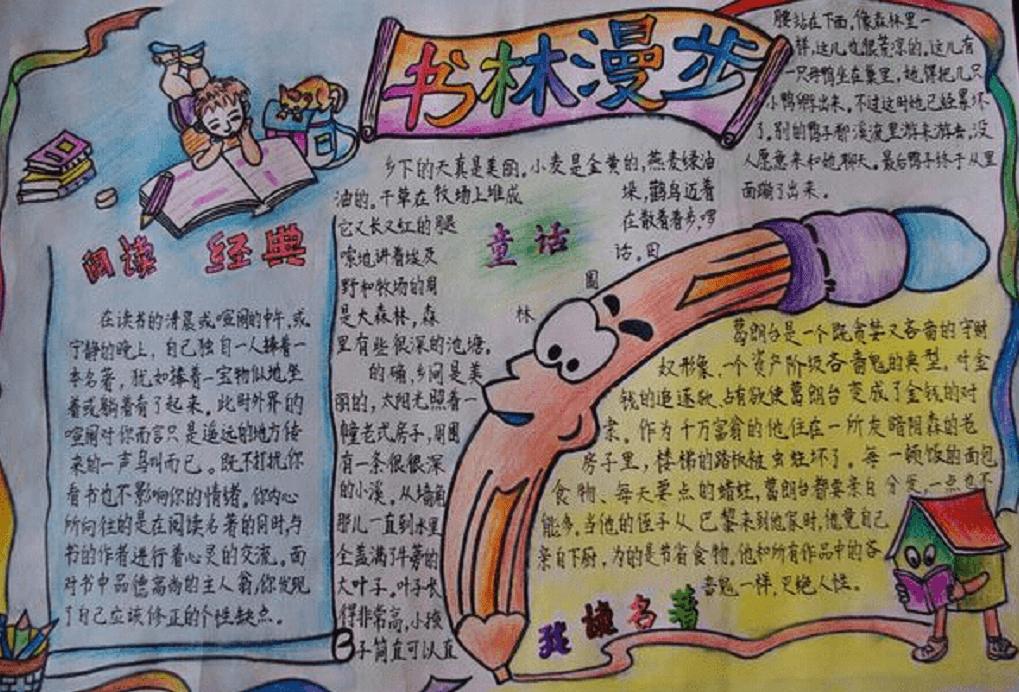 书林漫步
阅读 经典
在读书的清晨或喧闹的中午,或
宁静的晚上,自己独自一人捧着一
本名著,犹如捧着一宝物似地坐
着或躺着看了起来。此时外界的
喧闹对你而言只是遥远的地方传
来的一声鸟叫而已。既不打扰你
看书也不影响你的情绪。你内心
所向往的是在阅读名著的同时,与
书的作者进行着心灵的交流。面
对书中品德高尚的主人翁,你发现
了自己应该修正的个性缺点。
童话
乡下的天真是美丽。小麦是金黄的,燕麦绿油
油的。干草在牧场上堆成垛,鹳鸟迈着
它又长又红的腿在散着步,啰
嗦地讲着埃及话。田
野和牧场的周围
是大森林,森林
里有些很深的池塘。
的确,乡间是美
丽的,太阳光照着一
幢老式房子,周围
有一条很很深
的小溪。从墙角
那儿一直到水里
全盖满了牛蒡的
大叶子。叶子长
得非常高,小孩
子简直可以直
腰站在下面,像森林里一
样,这儿也很荒凉的。这儿有
一只母鸭坐在巢里,她得把几只
小鸭孵出来。不过这时她已经累坏
了。别的鸭子都溪流里游来游去,没
人愿意来和她聊天。最后鸭子终于从里
面蹦了出来。
葛朗台是一个既贪婪又吝啬的守财
奴形象,一个资产阶级吝啬鬼的典型。对金
钱的追逐欲、占有欲使葛朗台变成了金钱的对
象。作为千万富翁的他住在一所灰暗阴森的老
房子里,楼梯的踏板被虫蛀坏了。每一顿饭的面包
食物、每天要点的蜡蛀,葛朗台都要亲自分发,一点也不
能多。当他的侄子从巴黎来到他家时,他竟自己
亲自下厨,为的是节省食物。他和所有作品中的吝
啬鬼一样,灭绝人性。
读名著